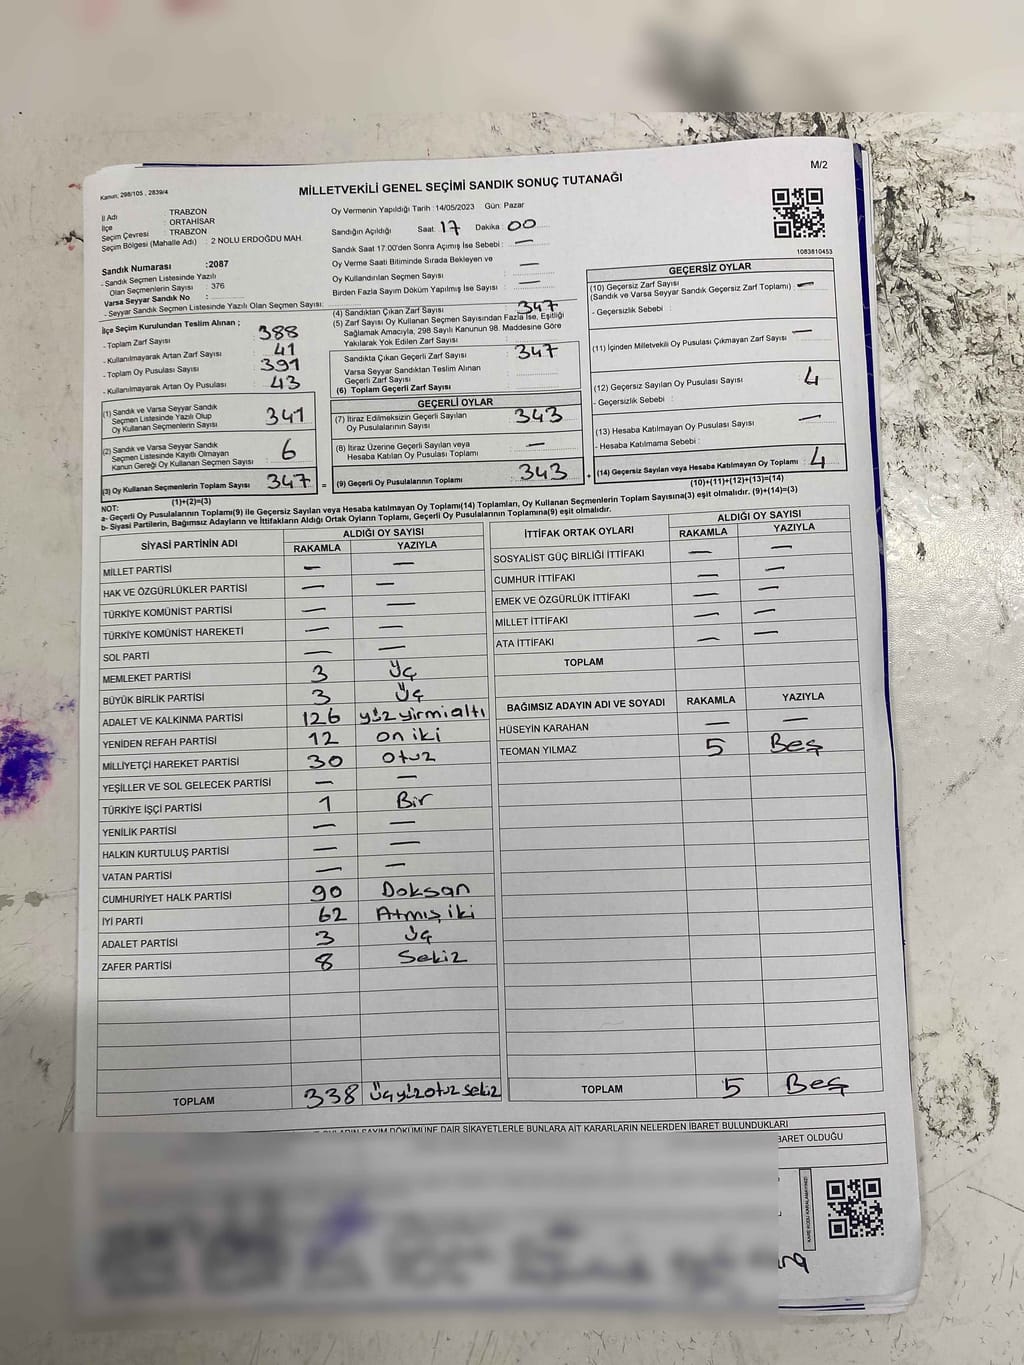 M/2
Kanun: 298/105 , 2839/4
MİLLETVEKİLİ GENEL SEÇİMİ SANDIK SONUÇ TUTANAĞI
İl Adı : TRABZON
İlçe : ORTAHİSAR
Seçim Çevresi : TRABZON
Seçim Bölgesi (Mahalle Adı) : 2 NOLU ERDOĞDU MAH.
Sandık Numarası : 2087
- Sandık Seçmen Listesinde Yazılı
Olan Seçmenlerin Sayısı : 376
Varsa Seyyar Sandık No :
- Seyyar Sandık Seçmen Listesinde Yazılı Olan Seçmen Sayısı:
Oy Vermenin Yapıldığı Tarih : 14/05/2023 Gün: Pazar
Sandığın Açıldığı Saat: 17 Dakika: 00
Sandık Saat 17:00'den Sonra Açımış İse Sebebi : —
Oy Verme Saati Bitiminde Sırada Bekleyen ve
Oy Kullandırılan Seçmen Sayısı : —
Birden Fazla Sayım Döküm Yapılmış İse Sayısı : —
1083810453
İlçe Seçim Kurulundan Teslim Alınan ;
- Toplam Zarf Sayısı : 388
- Kullanılmayarak Artan Zarf Sayısı : 41
- Toplam Oy Pusulası Sayısı : 391
- Kullanılmayarak Artan Oy Pusulası : 43
(1) Sandık ve Varsa Seyyar Sandık
Seçmen Listesinde Yazılı Olup
Oy Kullanan Seçmenlerin Sayısı : 341
(2) Sandık ve Varsa Seyyar Sandık
Seçmen Listesinde Kayıtlı Olmayan
Kanun Gereği Oy Kullanan Seçmen Sayısı : 6
(3) Oy Kullanan Seçmenlerin Toplam Sayısı : 347 =
(1)+(2)=(3)
(4) Sandıktan Çıkan Zarf Sayısı : 347
(5) Zarf Sayısı Oy Kullanan Seçmen Sayısından Fazla İse, Eşitliği
Sağlamak Amacıyla, 298 Sayılı Kanunun 98. Maddesine Göre
Yakılarak Yok Edilen Zarf Sayısı :
Sandıkta Çıkan Geçerli Zarf Sayısı : 347
Varsa Seyyar Sandıktan Teslim Alınan
Geçerli Zarf Sayısı :
(6) Toplam Geçerli Zarf Sayısı :
GEÇERLİ OYLAR
(7) İtiraz Edilmeksizin Geçerli Sayılan
Oy Pusulalarının Sayısı : 343
(8) İtiraz Üzerine Geçerli Sayılan veya
Hesaba Katılan Oy Pusulası Toplamı : —
(9) Geçerli Oy Pusulalarının Toplamı : 343 +
GEÇERSİZ OYLAR
(10) Geçersiz Zarf Sayısı
(Sandık ve Varsa Seyyar Sandık Geçersiz Zarf Toplamı) : —
- Geçersizlik Sebebi :
(11) İçinden Milletvekili Oy Pusulası Çıkmayan Zarf Sayısı : —
(12) Geçersiz Sayılan Oy Pusulası Sayısı : 4
- Geçersizlik Sebebi :
(13) Hesaba Katılmayan Oy Pusulası Sayısı : —
- Hesaba Katılmama Sebebi :
(14) Geçersiz Sayılan veya Hesaba Katılmayan Oy Toplamı : 4
(10)+(11)+(12)+(13)=(14)
NOT:
a- Geçerli Oy Pusulalarının Toplamı(9) ile Geçersiz Sayılan veya Hesaba katılmayan Oy Toplamı(14) Toplamları, Oy Kullanan Seçmenlerin Toplam Sayısına(3) eşit olmalıdır. (9)+(14)=(3)
b- Siyasi Partilerin, Bağımsız Adayların ve İttifakların Aldığı Ortak Oyların Toplamı, Geçerli Oy Pusulalarının Toplamına(9) eşit olmalıdır.
SİYASİ PARTİNİN ADI ALDIĞI OY SAYISI
RAKAMLA YAZIYLA
MİLLET PARTİSİ — —
HAK VE ÖZGÜRLÜKLER PARTİSİ — —
TÜRKİYE KOMÜNİST PARTİSİ — —
TÜRKİYE KOMÜNİST HAREKETİ — —
SOL PARTİ — —
MEMLEKET PARTİSİ 3 Üç
BÜYÜK BİRLİK PARTİSİ 3 Üç
ADALET VE KALKINMA PARTİSİ 126 yüzyirmialtı
YENİDEN REFAH PARTİSİ 12 on iki
MİLLİYETÇİ HAREKET PARTİSİ 30 otuz
YEŞİLLER VE SOL GELECEK PARTİSİ — —
TÜRKİYE İŞÇİ PARTİSİ 1 Bir
YENİLİK PARTİSİ — —
HALKIN KURTULUŞ PARTİSİ — —
VATAN PARTİSİ — —
CUMHURİYET HALK PARTİSİ 90 Doksan
İYİ PARTİ 62 Atmış iki
ADALET PARTİSİ 3 üç
ZAFER PARTİSİ 8 Sekiz
TOPLAM 338 Üçyüzotuz sekiz
İTTİFAK ORTAK OYLARI ALDIĞI OY SAYISI
RAKAMLA YAZIYLA
SOSYALİST GÜÇ BİRLİĞİ İTTİFAKI — —
CUMHUR İTTİFAKI — —
EMEK VE ÖZGÜRLÜK İTTİFAKI — —
MİLLET İTTİFAKI — —
ATA İTTİFAKI — —
TOPLAM
BAĞIMSIZ ADAYIN ADI VE SOYADI RAKAMLA YAZIYLA
HÜSEYİN KARAHAN — —
TEOMAN YILMAZ 5 Beş
TOPLAM 5 Beş
OYLARIN SAYIM DÖKÜMÜNE DAİR ŞİKAYETLERLE BUNLARA AİT KARARLARIN NELERDEN İBARET BULUNDUKLARI
İBARET OLDUĞU